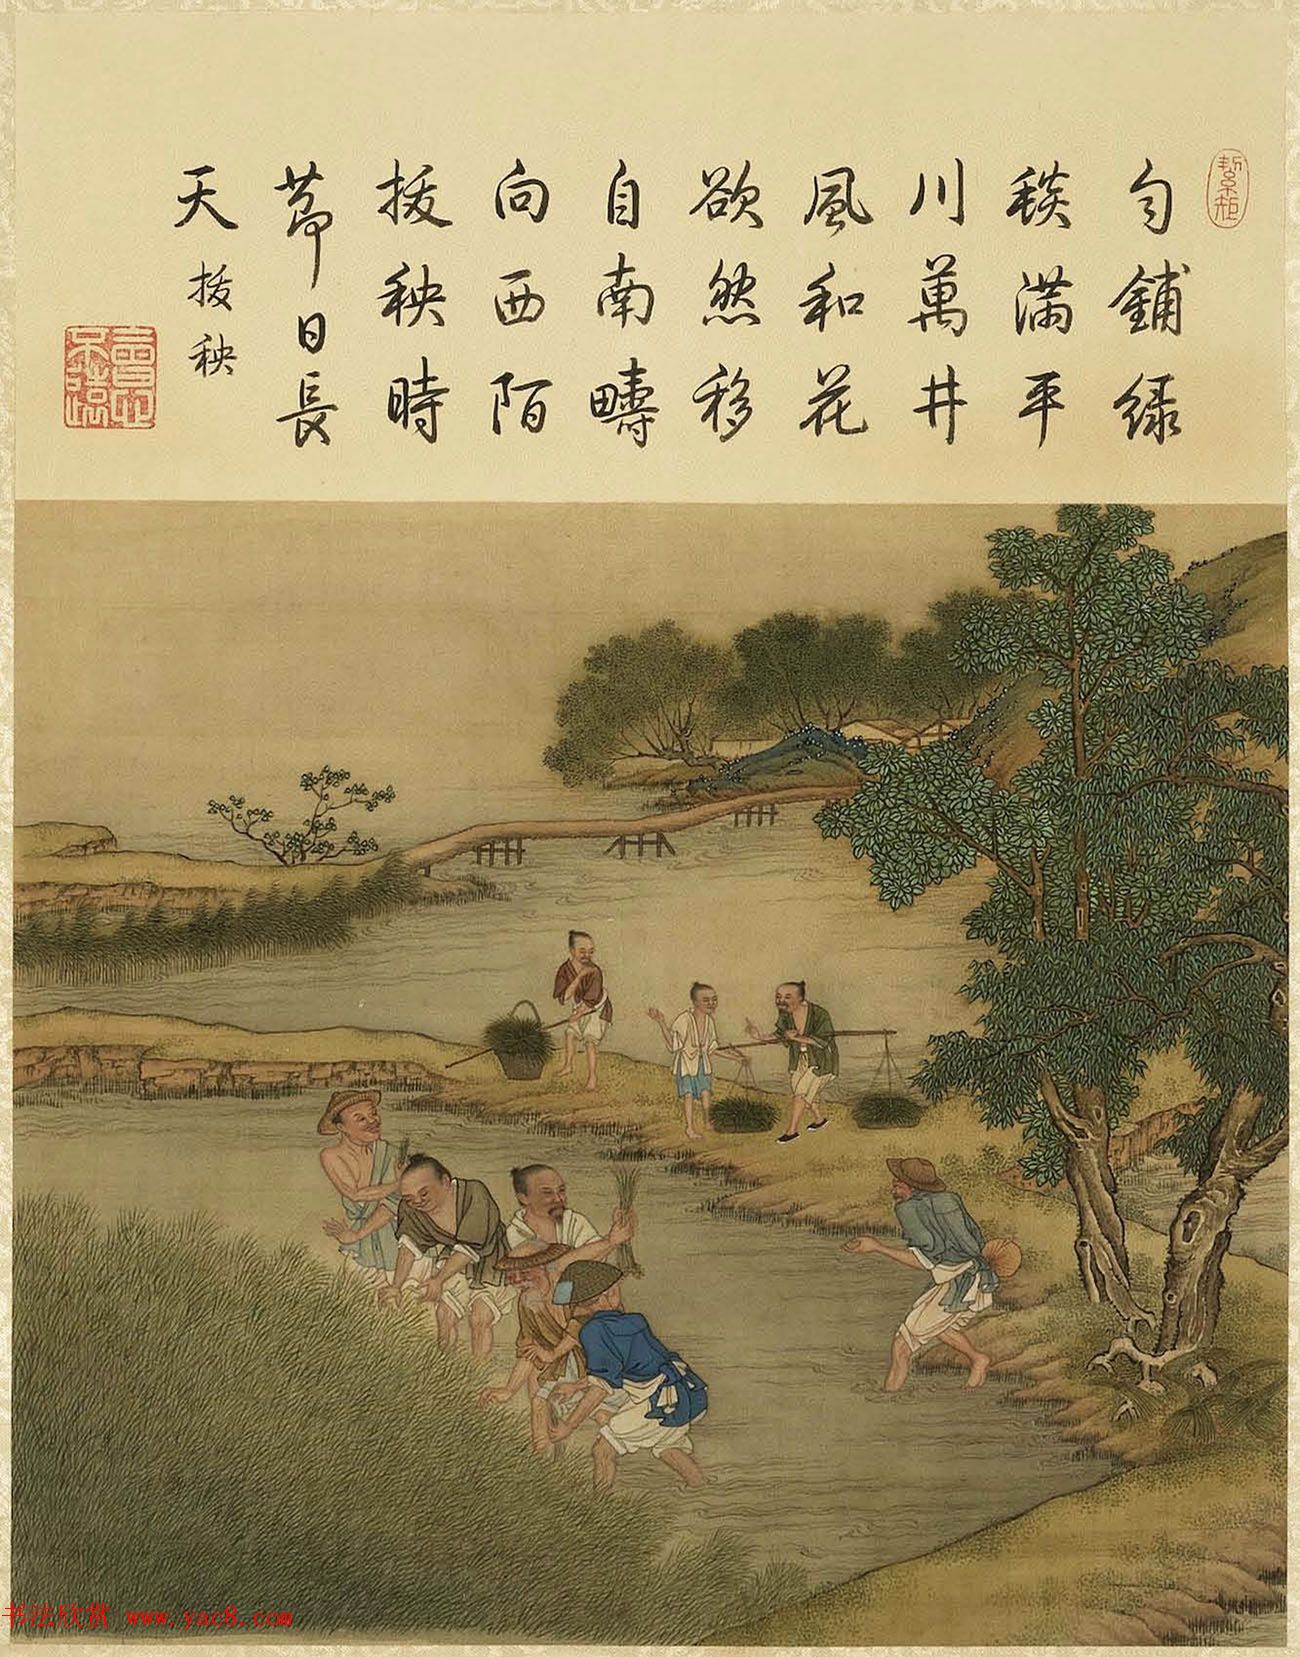 匀鋪緑
毯满平
川萬井
風和花
欲然移
自南疇
向西陌
拔秧時
節日長
天
拔秧
书法欣赏 www.yac8.com